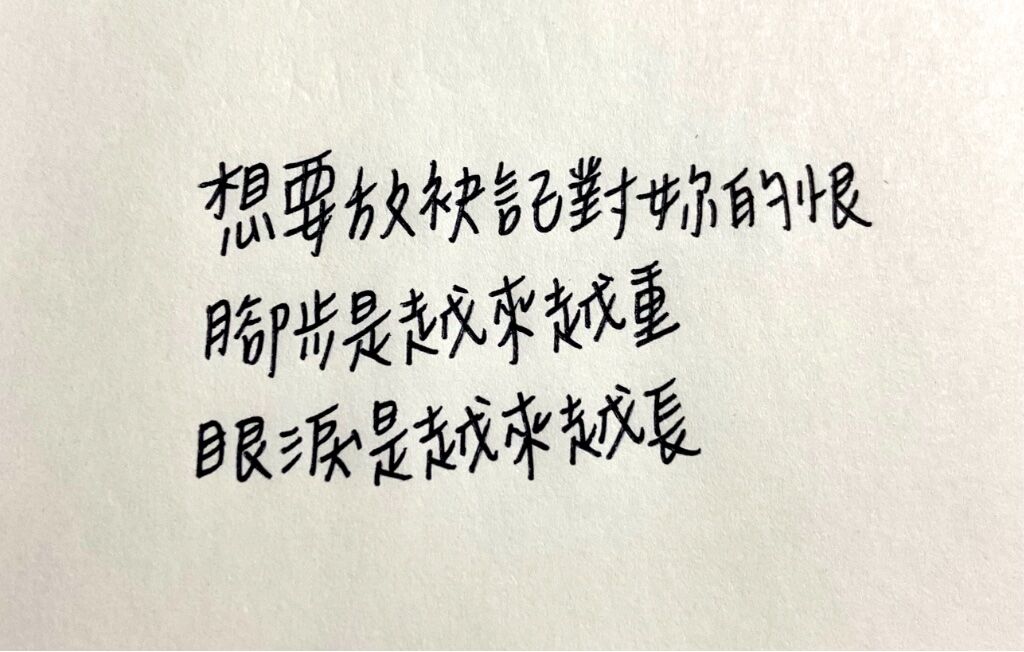 想要放袂記對妳的恨
腳步是越來越重
眼淚是越來越長